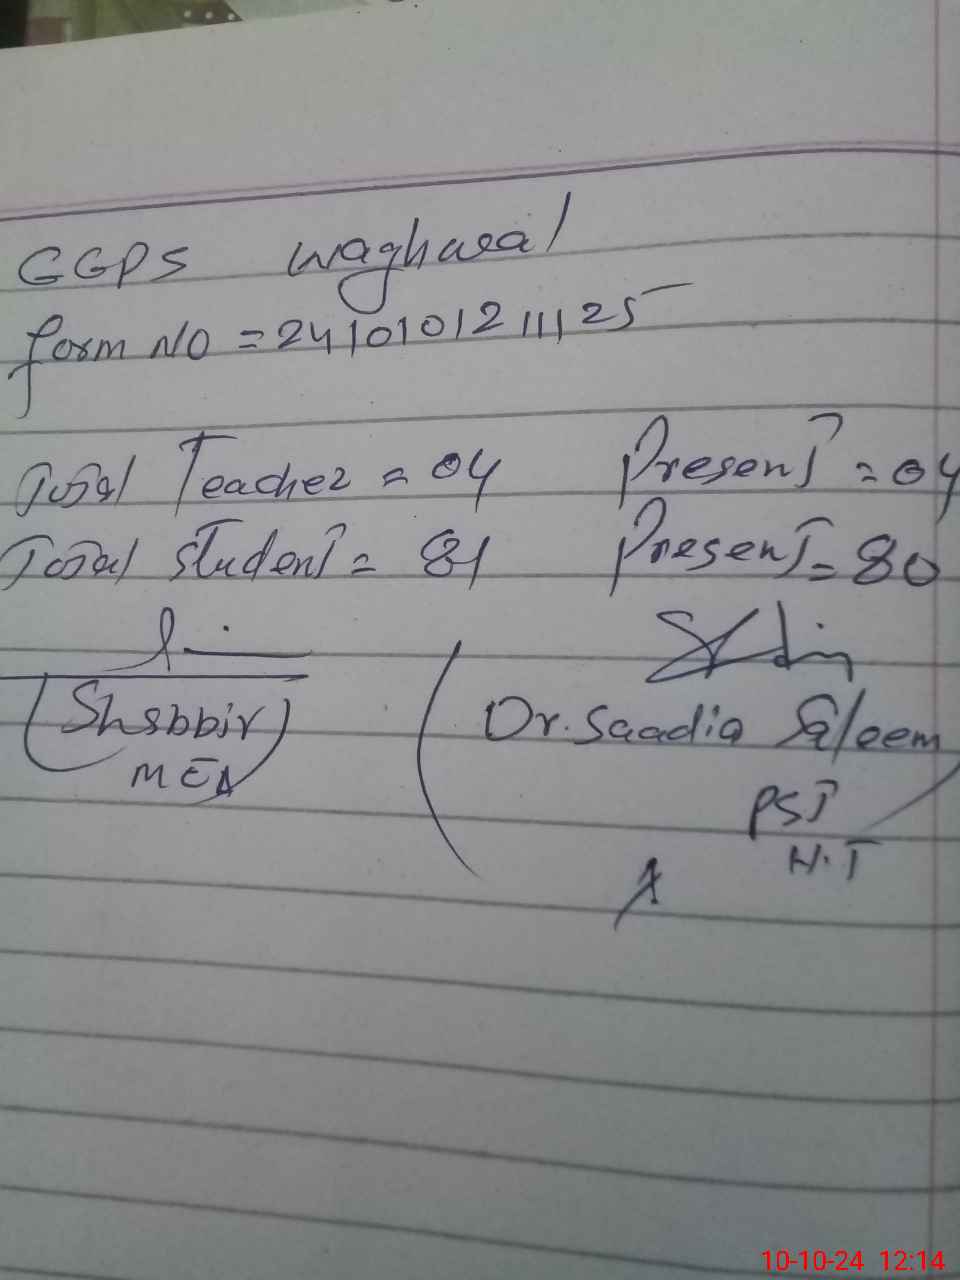 GGPS waghwal
form NO = 2410101211125
Total Teacher = 04 Present = 04
Total student = 81 Present = 80
(Shabbir)
MEA
(Dr. Saadia Saleem
PST
H.T
10-10-24 12:14